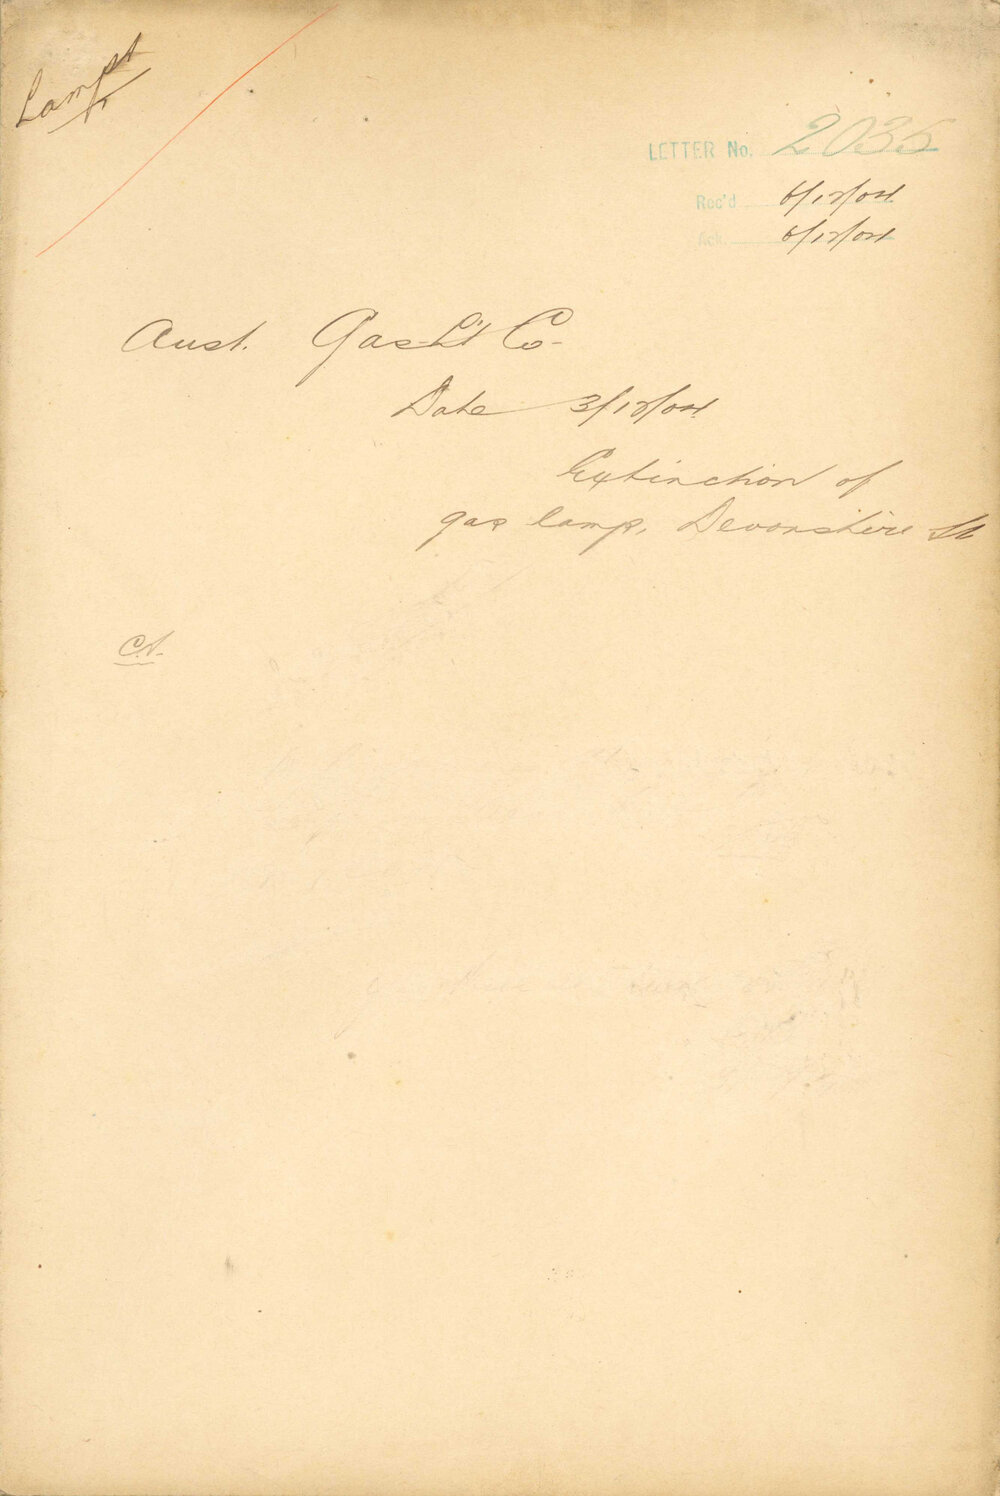 Lamps
LETTER No. 2035
Rec'd 6/12/04
Ack. 6/12/04
Aust. Gas Lt Co.
Date 3/12/04
Extinction of
gas lamp, Devonshire St